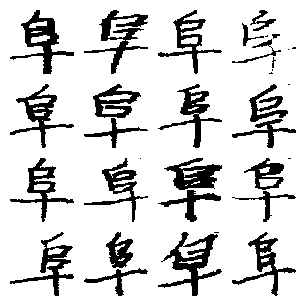 阜阜阜阜
阜阜阜阜
阜阜阜阜
阜阜阜阜